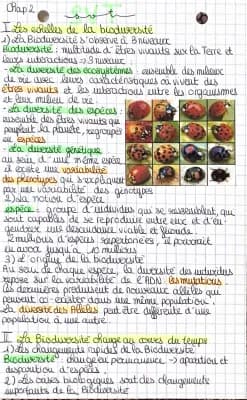 Chap 2
I Les échelles de la biodiversité
1) La Biodiversité s'observe à 3 niveaux
Biodiversité : multitude d'êtres vivants sur la Terre et
leurs interactions → 3 niveaux
- La diversité des écosystèmes : ensemble des milieux
de vie avec leurs caractéristiques où vivent des
êtres vivants et les interactions entre les organismes
et leur milieu de vie.
- La diversité des espèces :
ensemble des êtres vivants qui
peuplent la planète, regroupés
en espèces
- La diversité génétique
au sein d'une même espèce
il existe une variabilité
des phénotypes qui s'expliquent
par une variabilité des génotypes
2) La notion d'espèce
espèce : groupe d'individus qui se ressemblent, qui
sont capables de se reproduire entre eux et d'en-
gendrer une descendance viable et féconde
2 millions d'espèces répertoriées, il pourrait
en avoir jusqu'à 10 millions
3) L'origine de la biodiversité
Au sein de chaque espèce, la diversité des individus
repose sur la variabilité de l'ADN: les mutations
ces dernières produisent de nouveaux allèles qui
peuvent co-exister dans une même population.
La diversité des Allèles peut être différente d'une
population à une autre
II La Biodiversité change au cours du temps
1) Les changements rapides de la Biodiversité
Biodiversité : change en permanence → apparition et
disparition d'espèces.
2) Les crises biologiques sont des changements
importants de la Biodiversité